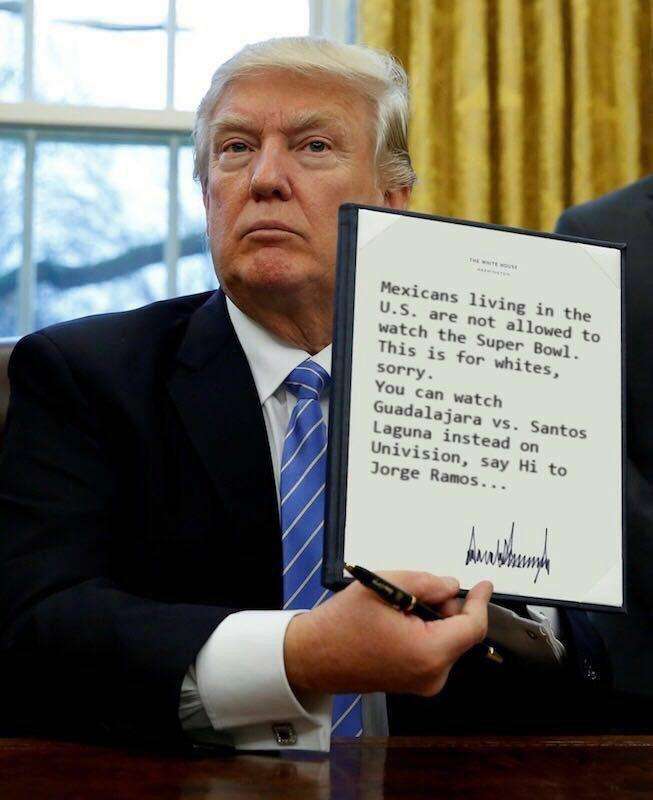 THE WHITE HOUSE
WASHINGTON
Mexicans living in the
U.S. are not allowed to
watch the Super Bowl.
This is for whites,
sorry.
You can watch
Guadalajara vs. Santos
Laguna instead on
Univision, say Hi to
Jorge Ramos...